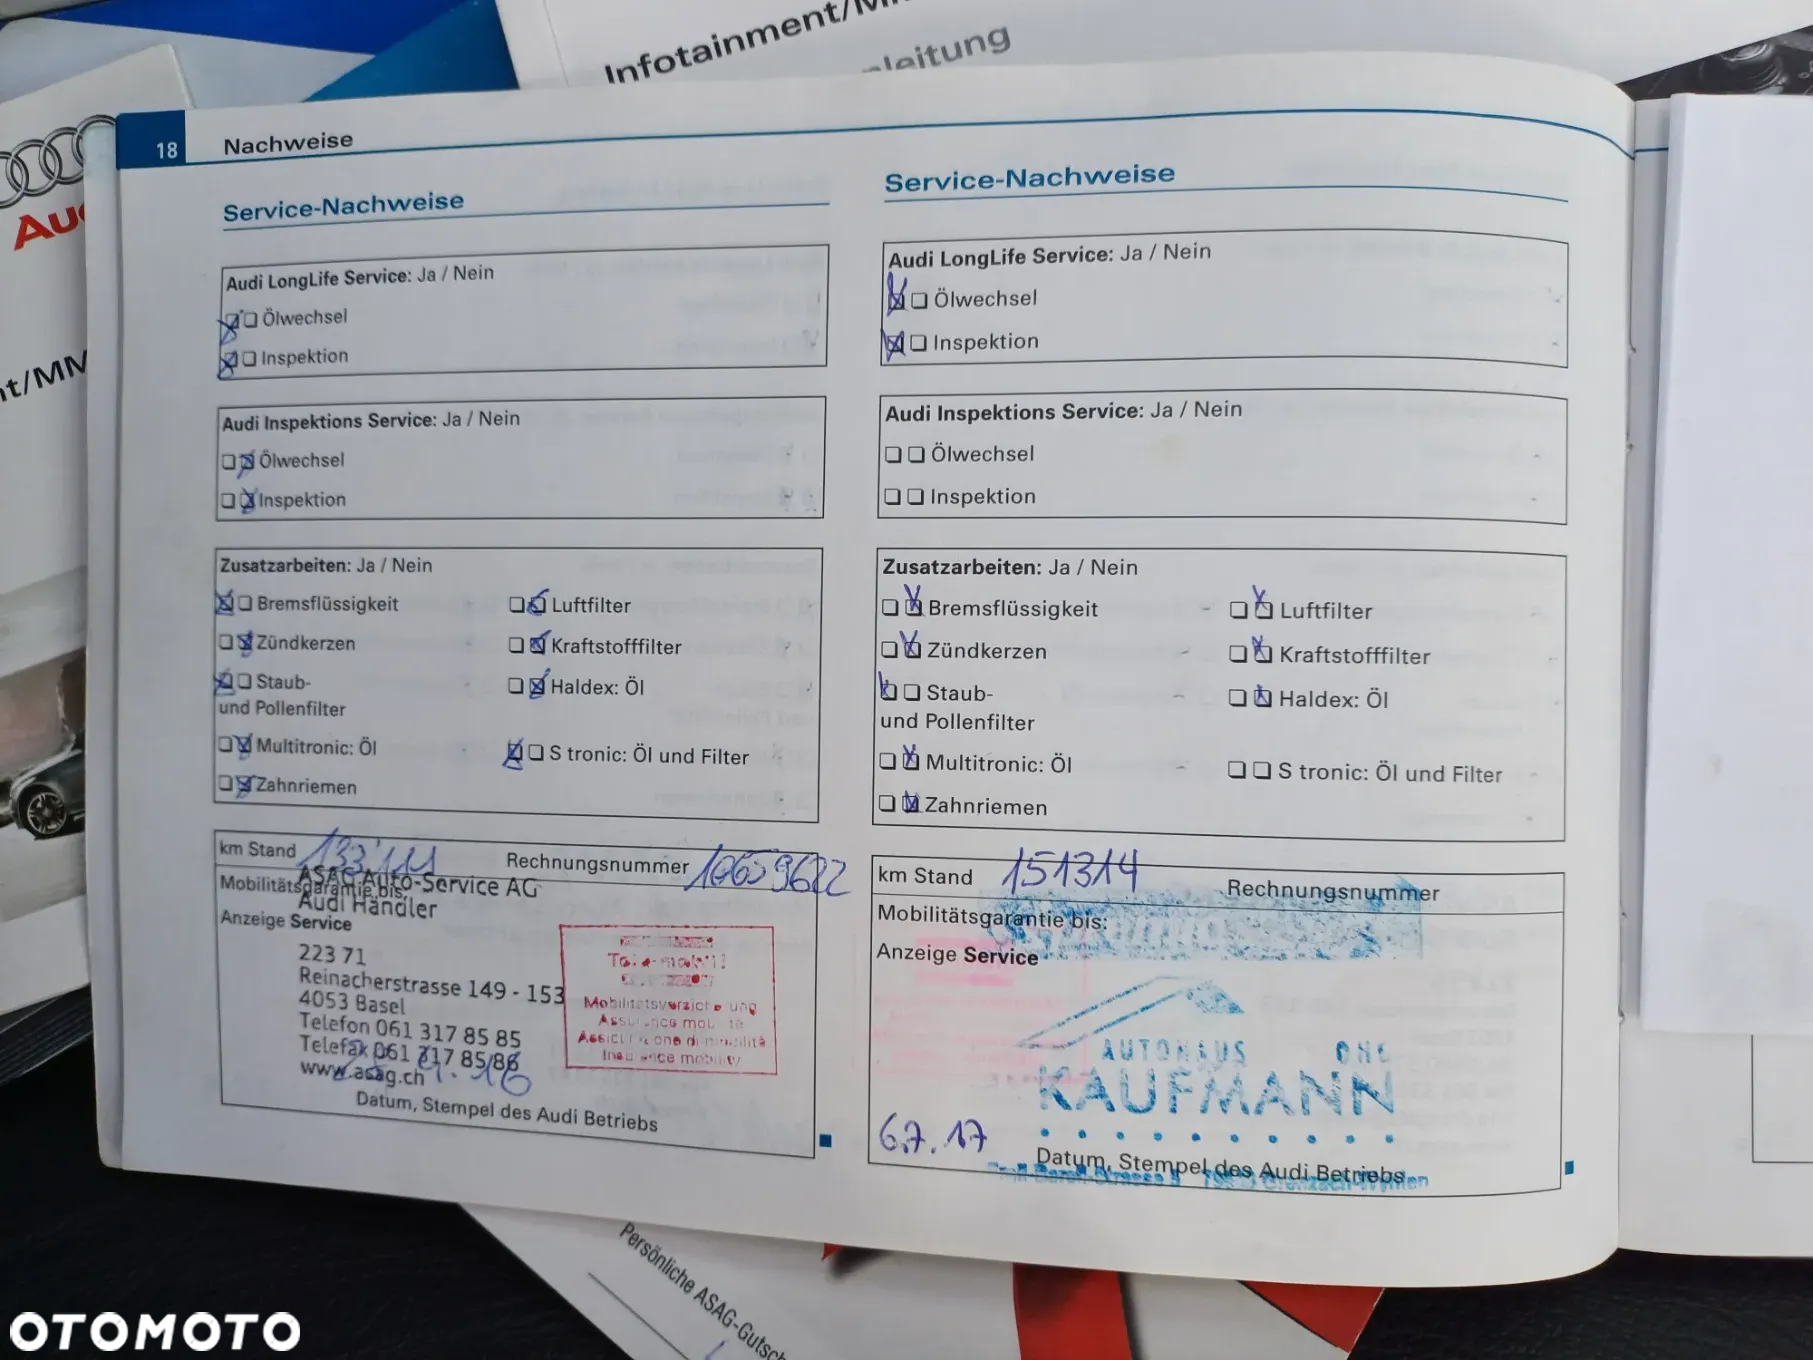 Infotainment/MM
leitung
Aud
t/MM
18 Nachweise
Service-Nachweise
Audi LongLife Service: Ja / Nein
Ölwechsel
Inspektion
Audi Inspektions Service: Ja / Nein
Ölwechsel
Inspektion
Zusatzarbeiten: Ja / Nein
Bremsflüssigkeit
Luftfilter
Zündkerzen
Kraftstofffilter
Staub-
und Pollenfilter
Haldex: Öl
Multitronic: Öl
S tronic: Öl und Filter
Zahnriemen
km Stand 133'111 Rechnungsnummer
Mobilitätsgarantie bis:
Anzeige Service
ASAG Auto-Service AG
Audi Händler
223 71
Reinacherstrasse 149 - 153
4053 Basel
Telefon 061 317 85 85
Telefax 061 317 85 86
www.asag.ch
Mobilitätsversicherung
Assurance mobilité
Assicurazione di mobilità
Insurance mobility
Datum, Stempel des Audi Betriebs
Service-Nachweise
Audi LongLife Service: Ja / Nein
Ölwechsel
Inspektion
Audi Inspektions Service: Ja / Nein
Ölwechsel
Inspektion
Zusatzarbeiten: Ja / Nein
Bremsflüssigkeit
Luftfilter
Zündkerzen
Kraftstofffilter
Staub-
und Pollenfilter
Haldex: Öl
Multitronic: Öl
S tronic: Öl und Filter
Zahnriemen
km Stand 151314 Rechnungsnummer
Mobilitätsgarantie bis:
Anzeige Service
AUTOHAUS
KAUFMANN
6.7.17
Datum, Stempel des Audi Betriebs
Persönliche ASAG-Gutsch
OTOMOTO